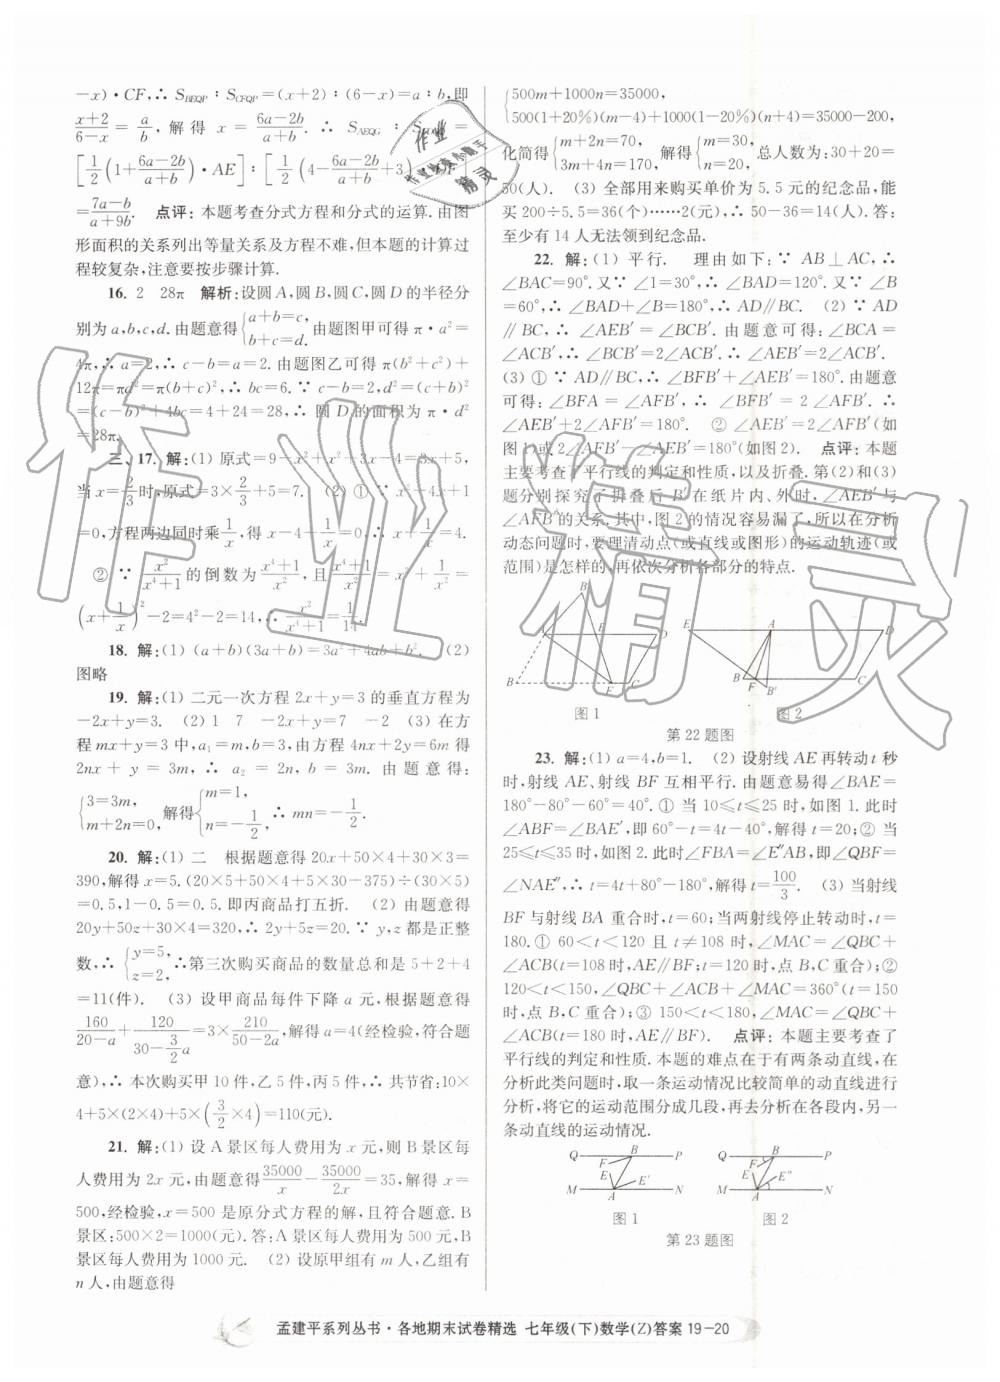 －x)·CF,∴ S_BEQP : S_CFQP =(x+2) : (6－x)=a : b,即
(x+2)/(6-x) = a/b, 解得 x = (6a-2b)/(a+b). ∴ S_AEQG :
[1/2(1+(6a-2b)/(a+b))·AE] : [1/2(4-(6a-2b)/(a+b)+3)
=(7a-b)/(a+9b). 点评: 本题考查分式方程和分式的运算. 由图
形面积的关系列出等量关系及方程不难,但本题的计算过
程较复杂,注意要按步骤计算.
16. 2 28π 解析:设圆 A,圆 B,圆 C,圆 D 的半径分
别为 a,b,c,d. 由题意得{a+b=c, b+c=d. 由题图甲可得 π·a²=
4π,∴ a=2,∴ c－b=a=2. 由题图乙可得 π(b²+c²)+
12π=πd²=π(b+c)²,∴ bc=6. ∵ c－b=2,d²=(c+b)²
=(c－b)²+4bc=4+24=28,∴ 圆 D 的面积为 π·d²
=28π.
三、17. 解:(1) 原式=9－x²+x²+3x－4=3x+5,
当 x=2/3 时,原式=3×2/3+5=7. (2) ① ∵ x²－4x+1
=0,方程两边同时乘1/x,得 x－4+1/x=0,∴ x+1/x=4.
② ∵ x²/(x⁴+1) 的倒数为 (x⁴+1)/x², 且 (x⁴+1)/x² = x²+1/x² =
(x+1/x)²－2=4²－2=14,∴ x²/(x⁴+1)=1/14.
18. 解:(1) (a+b)(3a+b)=3a²+4ab+b². (2)
图略
19. 解:(1) 二元一次方程 2x+y=3 的垂直方程为
－2x+y=3. (2) 1 7 －2x+y=7 －2 (3) 在方
程 mx+y=3 中,a₁=m,b=3,由方程 4nx+2y=6m 得
2nx + y = 3m, ∴ a₂ = 2n, b = 3m. 由题意得:
{3=3m, m+2n=0, 解得{m=1, n=－1/2, ∴ mn=－1/2.
20. 解:(1) 二 根据题意得 20x+50×4+30×3=
390,解得 x=5. (20×5+50×4+5×30－375)÷(30×5)
=0.5,1－0.5=0.5. 即丙商品打五折. (2) 由题意得
20y+50z+30×4=320,∴ 2y+5z=20. ∵ y,z 都是正整
数,∴ {y=5, z=2, ∴第三次购买商品的数量总和是 5+2+4
=11(件). (3) 设甲商品每件下降 a 元,根据题意得
160/(20-a) + 120/(30-(3/2)a) = 3×210/(50-2a),解得 a=4(经检验,符合题
意),∴ 本次购买甲 10 件,乙 5 件,丙 5 件,∴ 共节省:10×
4+5×(2×4)+5×(3/2×4)=110(元).
21. 解:(1) 设 A 景区每人费用为 x 元,则 B 景区每
人费用为 2x 元,由题意得35000/x－35000/2x=35,解得 x=
500,经检验,x=500 是原分式方程的解,且符合题意. B
景区:500×2=1000(元). 答:A 景区每人费用为 500 元,B
景区每人费用为 1000 元. (2) 设原甲组有 m 人,乙组有
n 人,由题意得
{500m+1000n=35000,
500(1+20%)(m－4)+1000(1－20%)(n+4)=35000－200,
化简得{m+2n=70, 3m+4n=170, 解得{m=30, n=20. 总人数为:30+20=
50(人). (3) 全部用来购买单价为 5.5 元的纪念品,能
买 200÷5.5=36(个)……2(元),∴ 50－36=14(人). 答:
至少有 14 人无法领到纪念品.
22. 解:(1) 平行. 理由如下:∵ AB⊥AC,∴
∠BAC=90°. 又∵ ∠1=30°,∴ ∠BAD=120°. 又∵ ∠B
=60°,∴ ∠BAD+∠B=180°,∴ AD∥BC. (2) ∵ AD
∥BC,∴ ∠AEB′=∠BCB′. 由题意可得:∠BCA=
∠ACB′,∴ ∠BCB′=2∠ACB′. ∴ ∠AEB′=2∠ACB′.
(3) ① ∵ AD∥BC,∴ ∠BFB′+∠AEB′=180°. 由题意
可得:∠BFA = ∠AFB′,∴ ∠BFB′ = 2 ∠AFB′. ∴
∠AEB′+2∠AFB′=180°. ② ∠AEB′=2∠AFB′(如
图 1)或 2∠AFB′－∠AEB′=180°(如图 2). 点评:本题
主要考查了平行线的判定和性质,以及折叠. 第(2)和(3)
题分别探究了折叠后 B′在纸片内、外时,∠AEB′与
∠AFB′的关系. 其中,图 2 的情况容易漏了,所以在分析
动态问题时,要理清动点(或直线或图形)的运动轨迹(或
范围)是怎样的,再依次分析各部分的特点.
B′ E D B F C
图 1
E A D B F B′ C
图 2
第 22 题图
23. 解:(1) a=4,b=1. (2) 设射线 AE 再转动 t 秒
时,射线 AE、射线 BF 互相平行. 由题意易得∠BAE=
180°－80°－60°=40°. ① 当 10≤t≤25 时,如图 1. 此时
∠ABF=∠BAE′,即 60°－t=4t－40°,解得 t=20;② 当
25≤t≤35 时,如图 2. 此时∠FBA=∠E″AB,即∠QBF=
∠NAE″,∴ t=4t+80°－180°,解得 t=100/3. (3) 当射线
BF 与射线 BA 重合时,t=60;当两射线停止转动时,t=
180. ① 60<t<120 且 t≠108 时,∠MAC=∠QBC+
∠ACB(t=108 时,AE∥BF;t=120 时,点 B,C 重合);②
120<t<150,∠QBC+∠ACB+∠MAC=360°(t=150
时,点 B,C 重合);③ 150<t<180,∠MAC=∠QBC+
∠ACB(t=180 时,AE∥BF). 点评:本题主要考查了
平行线的判定和性质. 本题的难点在于有两条动直线,在
分析此类问题时,取一条运动情况比较简单的动直线进行
分析,将它的运动范围分成几段,再去分析在各段内,另一
条动直线的运动情况.
Q B P F E E′ M A N
图 1
Q B P F E E″ M A N
图 2
第 23 题图
孟建平系列丛书·各地期末试卷精选 七年级(下)数学(Z)答案 19－20
作业精灵
作业
精灵